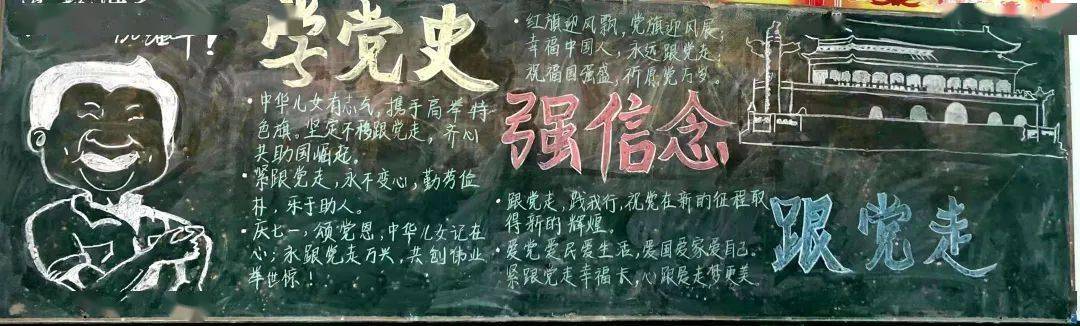 学党史
·中华儿女有志气,携手高举特
色旗。坚定不移跟党走,齐心
共助国崛起。
·紧跟党走,永不变心,勤劳俭
朴,乐于助人。
·庆七一,颂党恩,中华儿女记在
心;永跟党走万兴,共创伟业
举世惊!
·红旗迎风飘,党旗迎风展;
幸福中国人,永远跟党走;
祝福国强盛,祈愿党万岁。
强信念
·跟党走,践我行,祝党在新的征程取
得新的辉煌。
·爱党爱民爱生活,爱国爱家爱自己。
紧跟党走幸福长,心跟党走梦更美
跟党走